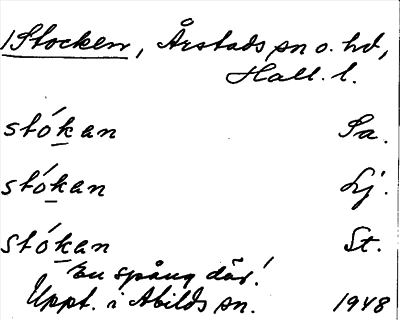 /Stocken, Årstads sn o. hd,
Hall. l.
stó̱kan Sa.
stó̱kan Lj.
stó̱kan St.
En spång där!
Uppt. i Abilds sn. 1948